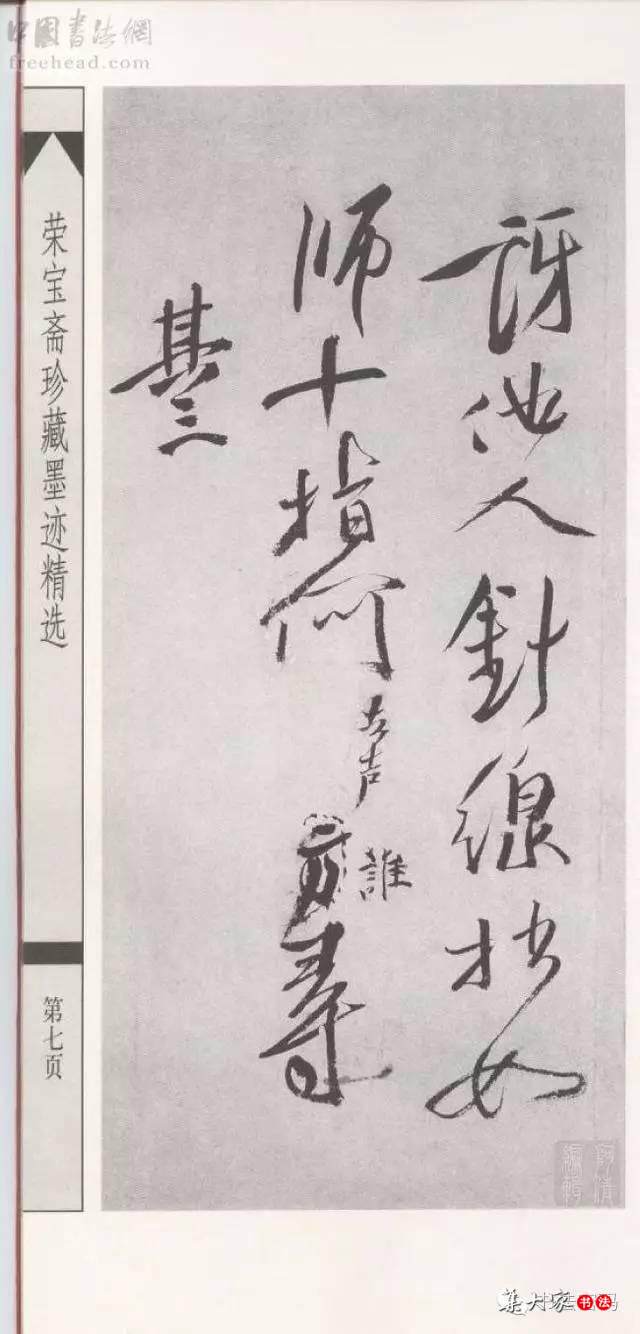 中國書法網
freehead.com
訝他人針線拙如
师十指何去声誰
其三
荣宝斋珍藏墨迹精选
第七页
集大家书法